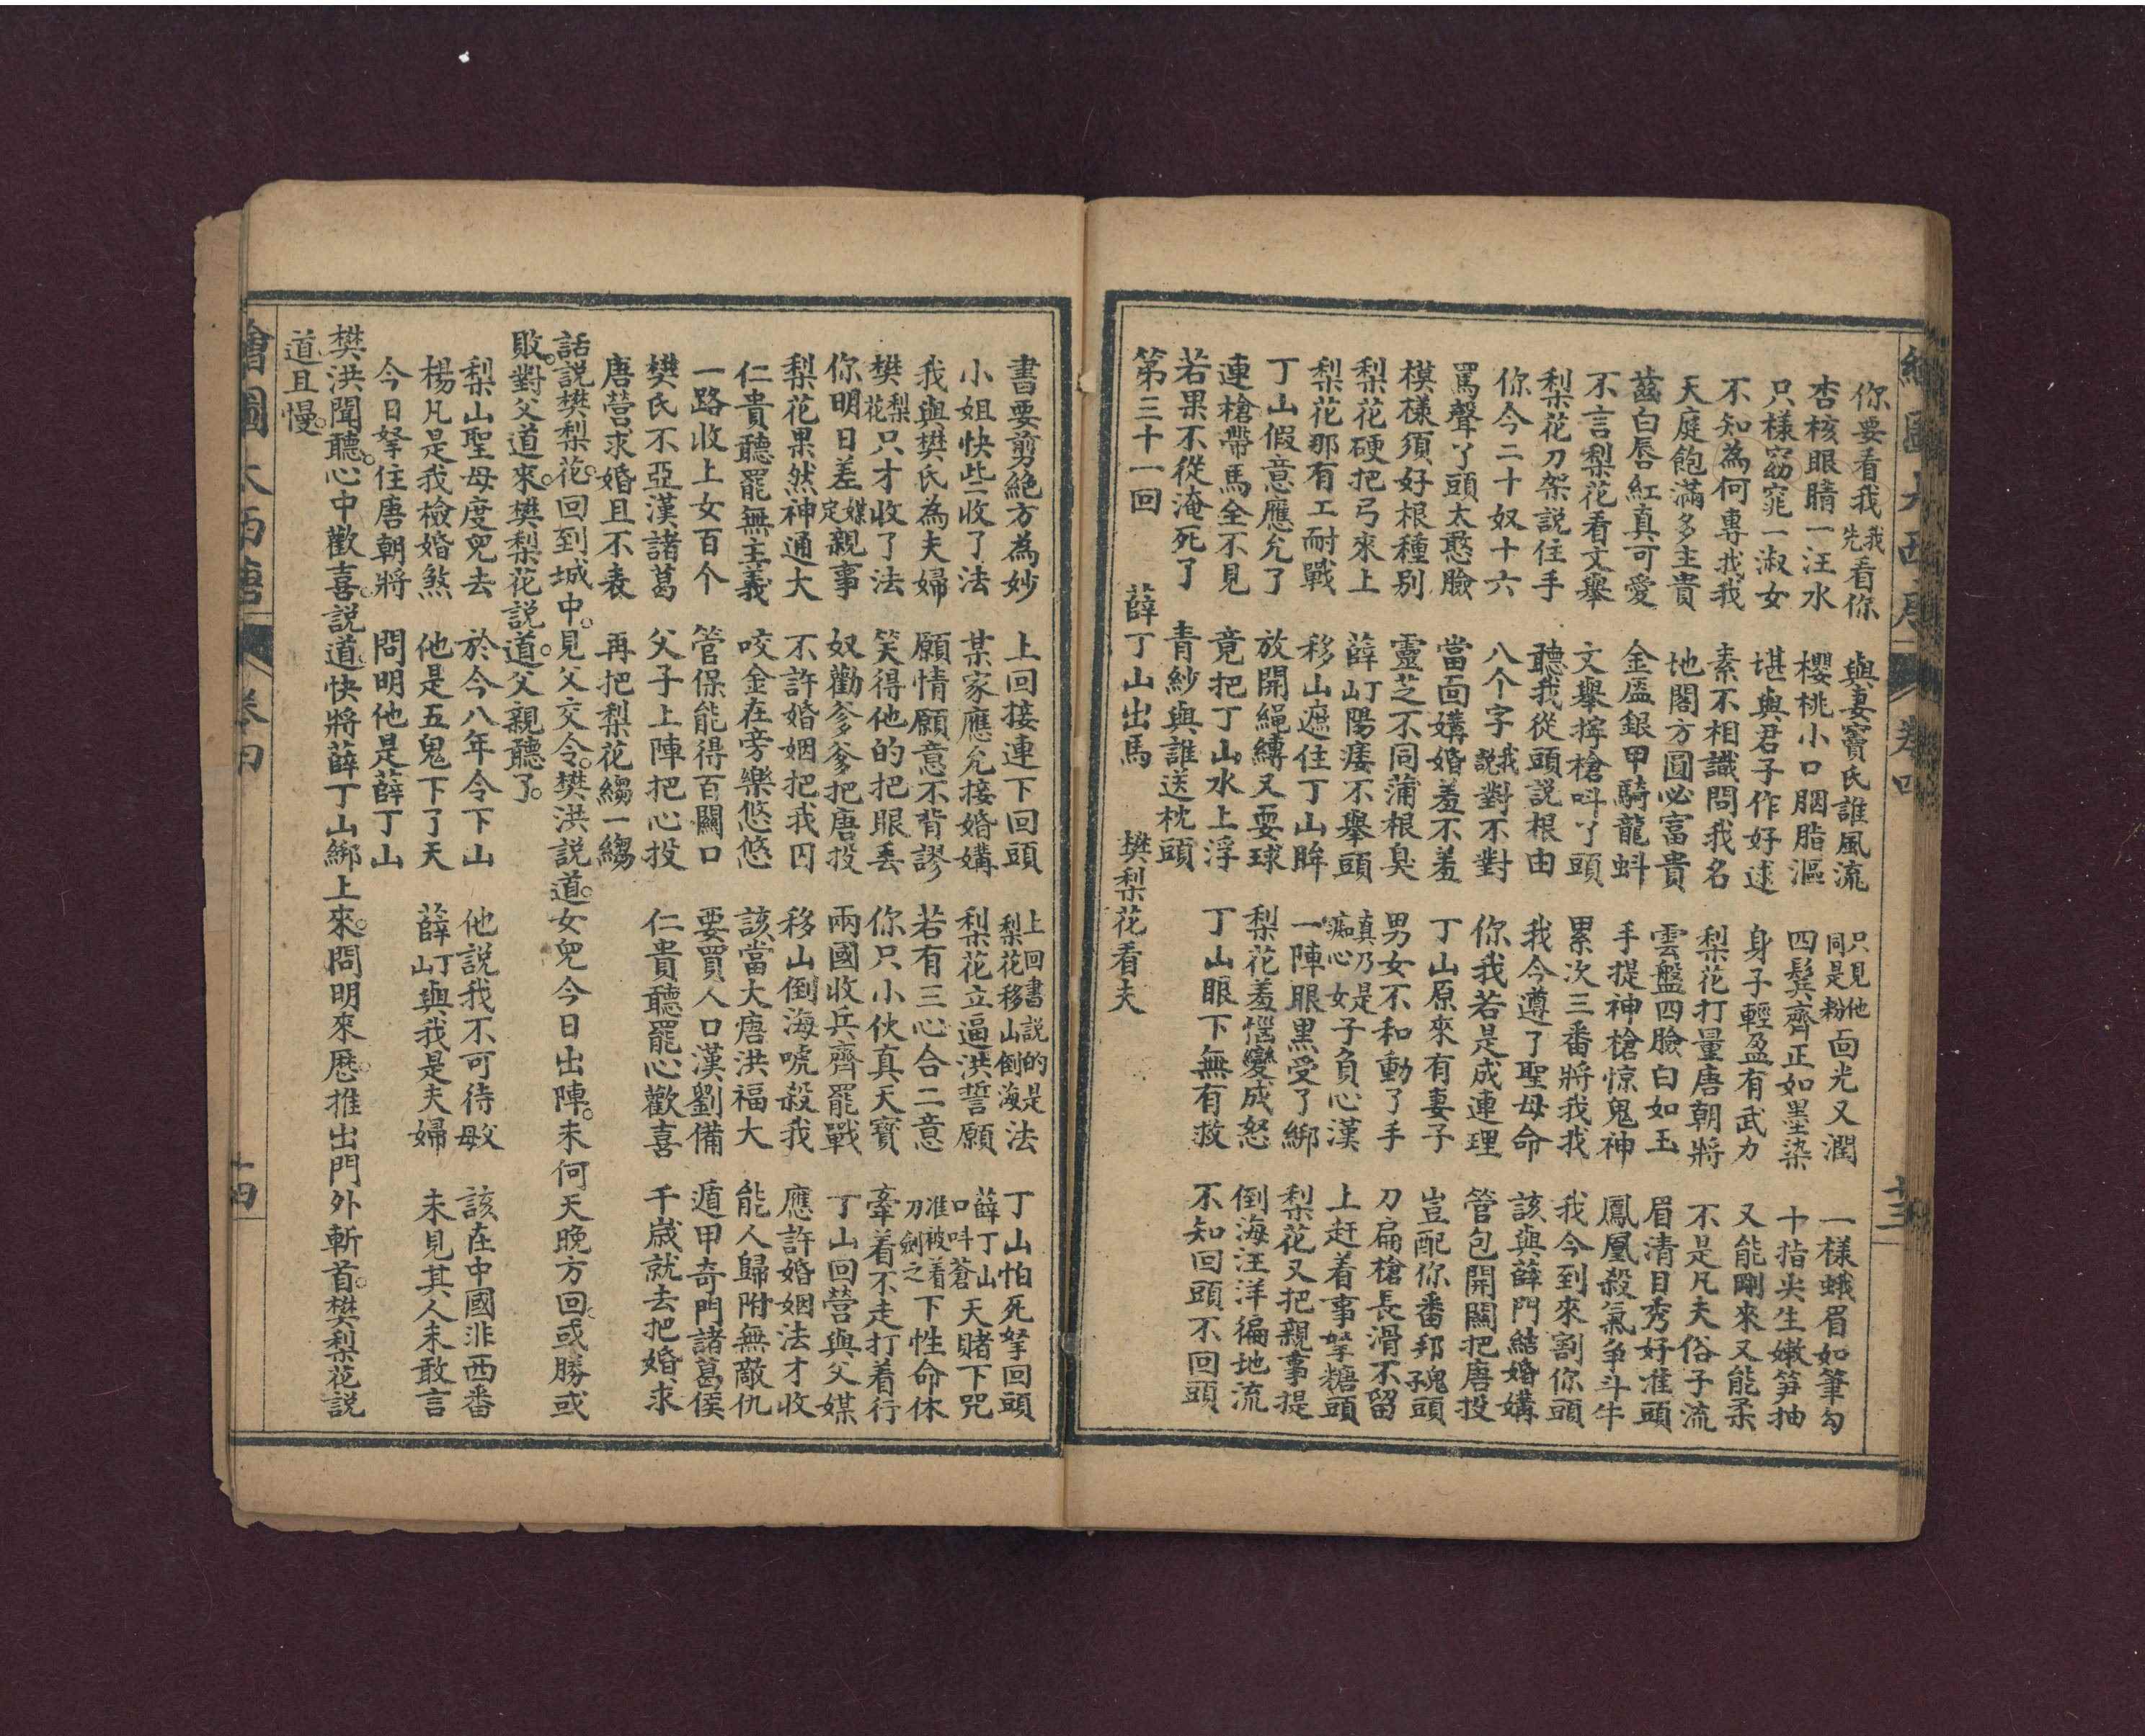 繪圖大西唐 卷四 十三
你要看我我先看你 與妻竇氏誰風流 只見他同是粉面光又潤 一樣蛾眉如筆勾
杏核眼睛一汪水 櫻桃小口胭脂漚 四鬓齊正如墨染 十指尖生嫩笋抽
只樣窈窕一淑女 堪與君子作好逑 身子輕盈有武力 又能剛來又能柔
不知為何專我我 素不相識問我名 梨花打量唐朝將 不是凡夫俗子流
天庭飽滿多主貴 地閣方圓必富貴 雲盤四臉白如玉 眉清目秀好準頭
齒白唇紅真可愛 金盔銀甲騎龍蚪 手提神槍惊鬼神 鳳凰殺氣争斗牛
不言梨花看文舉 文舉擰槍呌丫頭 累次三番將我我 我今到來割你頭
梨花刀架説住手 聽我從頭説根由 我今遵了聖母命 該與薛門結婚媾
你今二十奴十六 八个字我説對不對 你我若是成連理 管包開關把唐投
罵聲丫頭太憨臉 當面媾婚羞不羞 丁山原來有妻子 豈配你番邦醜頭
模樣須好根種别 靈芝不同蒲根臭 男女不和動了手 刀扁槍長滑不留
梨花硬把弓來上 薛丁山陽痿不舉頭 真乃是痴心女子負心漢 上赶着事拏糖頭
梨花那有工耐戰 移山遮住丁山眸 一陣眼黑受了綁 梨花又把親事提
丁山假意應允了 放開繩縛又耍球 梨花羞惱變成怒 倒海汪洋徧地流
連槍帶馬全不見 竟把丁山水上浮 丁山眼下無有救 不知回頭不回頭
若果不從淹死了 青紗與誰送枕頭
第三十一回 薛丁山出馬 樊梨花看夫
書要剪絶方為妙 上回接連下回頭 上回書説的是梨花移山倒海法 丁山怕死拏回頭
小姐快些收了法 某家應允接婚媾 梨花立逼洪誓願 薛丁山口呌蒼天賭下咒
我與樊氏為夫婦 願情願意不背謬 若有三心合二意 准被着刀劍之下性命休
樊梨花只才收了法 笑得他的把眼丢 你只小伙真天寳 牽着不走打着行
你明日差媒定親事 奴勸爹爹把唐投 兩國收兵齊罷戰 丁山回營與父媒
梨花果然神通大 不許婚姻把我囚 移山倒海唬殺我 應許婚姻法才收
仁貴聽罷無主義 咬金在旁樂悠悠 該當大唐洪福大 能人歸附無敵仇
一路收上女百个 管保能得百關口 要買人口漢劉備 遁甲奇門諸葛侯
樊氏不亞漢諸葛 父子上陣把心投 仁貴聽罷心歡喜 千歲就去把婚求
唐營求婚且不表 再把梨花縐一縐
話説樊梨花。回到城中。見父交令。樊洪説道。女兒今日出陣。未何天晚方回。或勝或
敗。對父道來。樊梨花説道。父親聽了。
梨山聖母度兒去 於今八年令下山 他説我不可待敏 該在中國非西番
楊凡是我檢婚煞 他是五鬼下了天 薛丁山與我是夫婦 未見其人未敢言
今日拏住唐朝將 問明他是薛丁山
樊洪聞聽。心中歡喜。説道。快將薛丁山綁上來。問明來歷。推出門外斬首。樊梨花説
道。且慢。
繪圖大西唐 卷四 十四